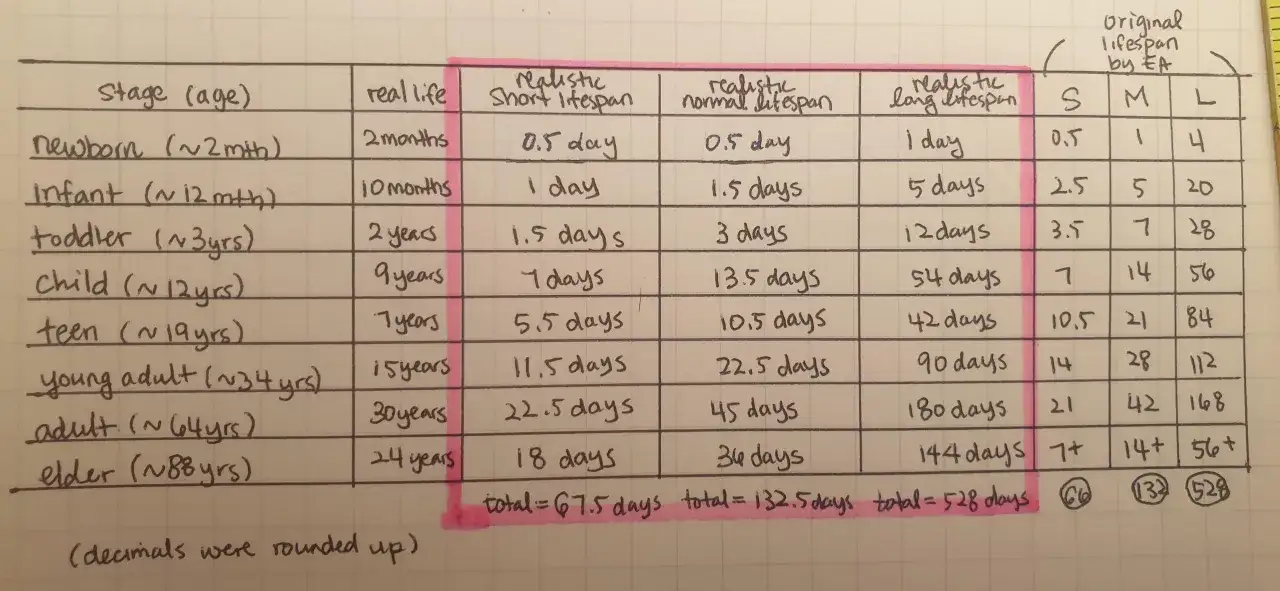 original
lifespan
by EA
stage (age) real life realistic short lifespan realistic normal lifespan realistic long lifespan S M L
newborn (~2mth) 2months 0.5 day 0.5 day 1 day 0.5 1 4
infant (~12mth) 10months 1 day 1.5 days 5 days 2.5 5 20
toddler (~3yrs) 2years 1.5 days 3 days 12days 3.5 7 28
child (~12yrs) 9years 7days 13.5 days 54 days 7 14 56
teen (~19yrs) 7years 5.5 days 10.5 days 42days 10.5 21 84
young adult (~34 yrs) 15years 11.5 days 22.5 days 90 days 14 28 112
adult (~64yrs) 30years 22.5 days 45 days 180 days 21 42 168
elder (~88yrs) 24years 18 days 36 days 144 days 7+ 14+ 56+
total = 67.5 days total = 132.5days total = 528 days 66 132 528
(decimals were rounded up)